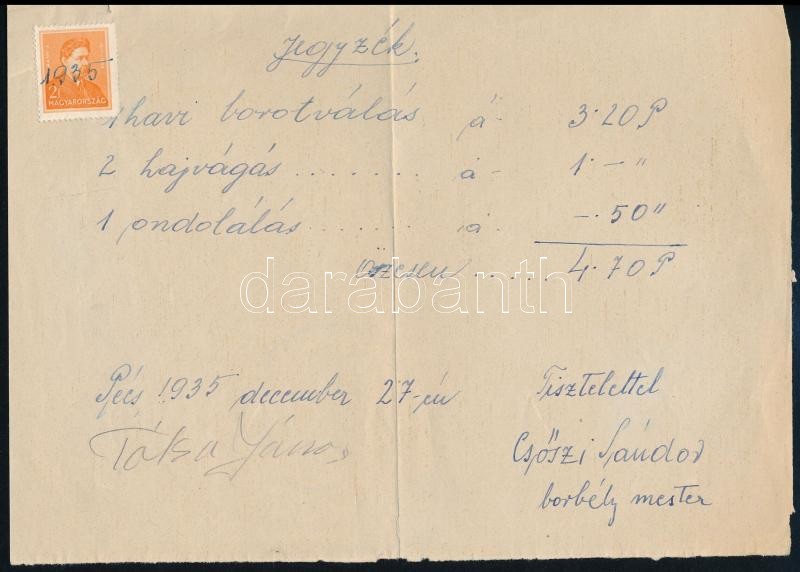 Jegyzék.
1935
2f
MAGYARORSZÁG
1 havi borotválás á 3·20 P
2 hajvágás ....... á - 1·- "
1 ondolálás ...... á - -·50 "
összesen .... 4·70 P
darabanth
Pécs, 1935 december 27-én Tisztelettel
János Csőszi Sándor
borbély mester